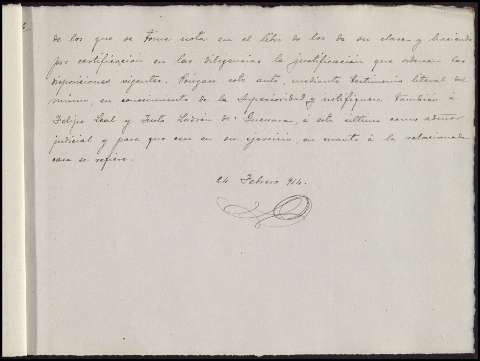 de los que se tome nota en el libro de los de su clase y haciendo
por certificación en las diligencias la justificación que ordenan las
disposiciones vigentes. Póngase este auto, mediante testimonio literal del
mismo, en conocimiento de la Superioridad y notifíquese también á
Felipe Leal y Justo Ladrón de Guevara, á este último como admor
judicial y para que cese en su ejercicio, en cuanto á la relacionada
casa se refiere.
24 Febrero 914.